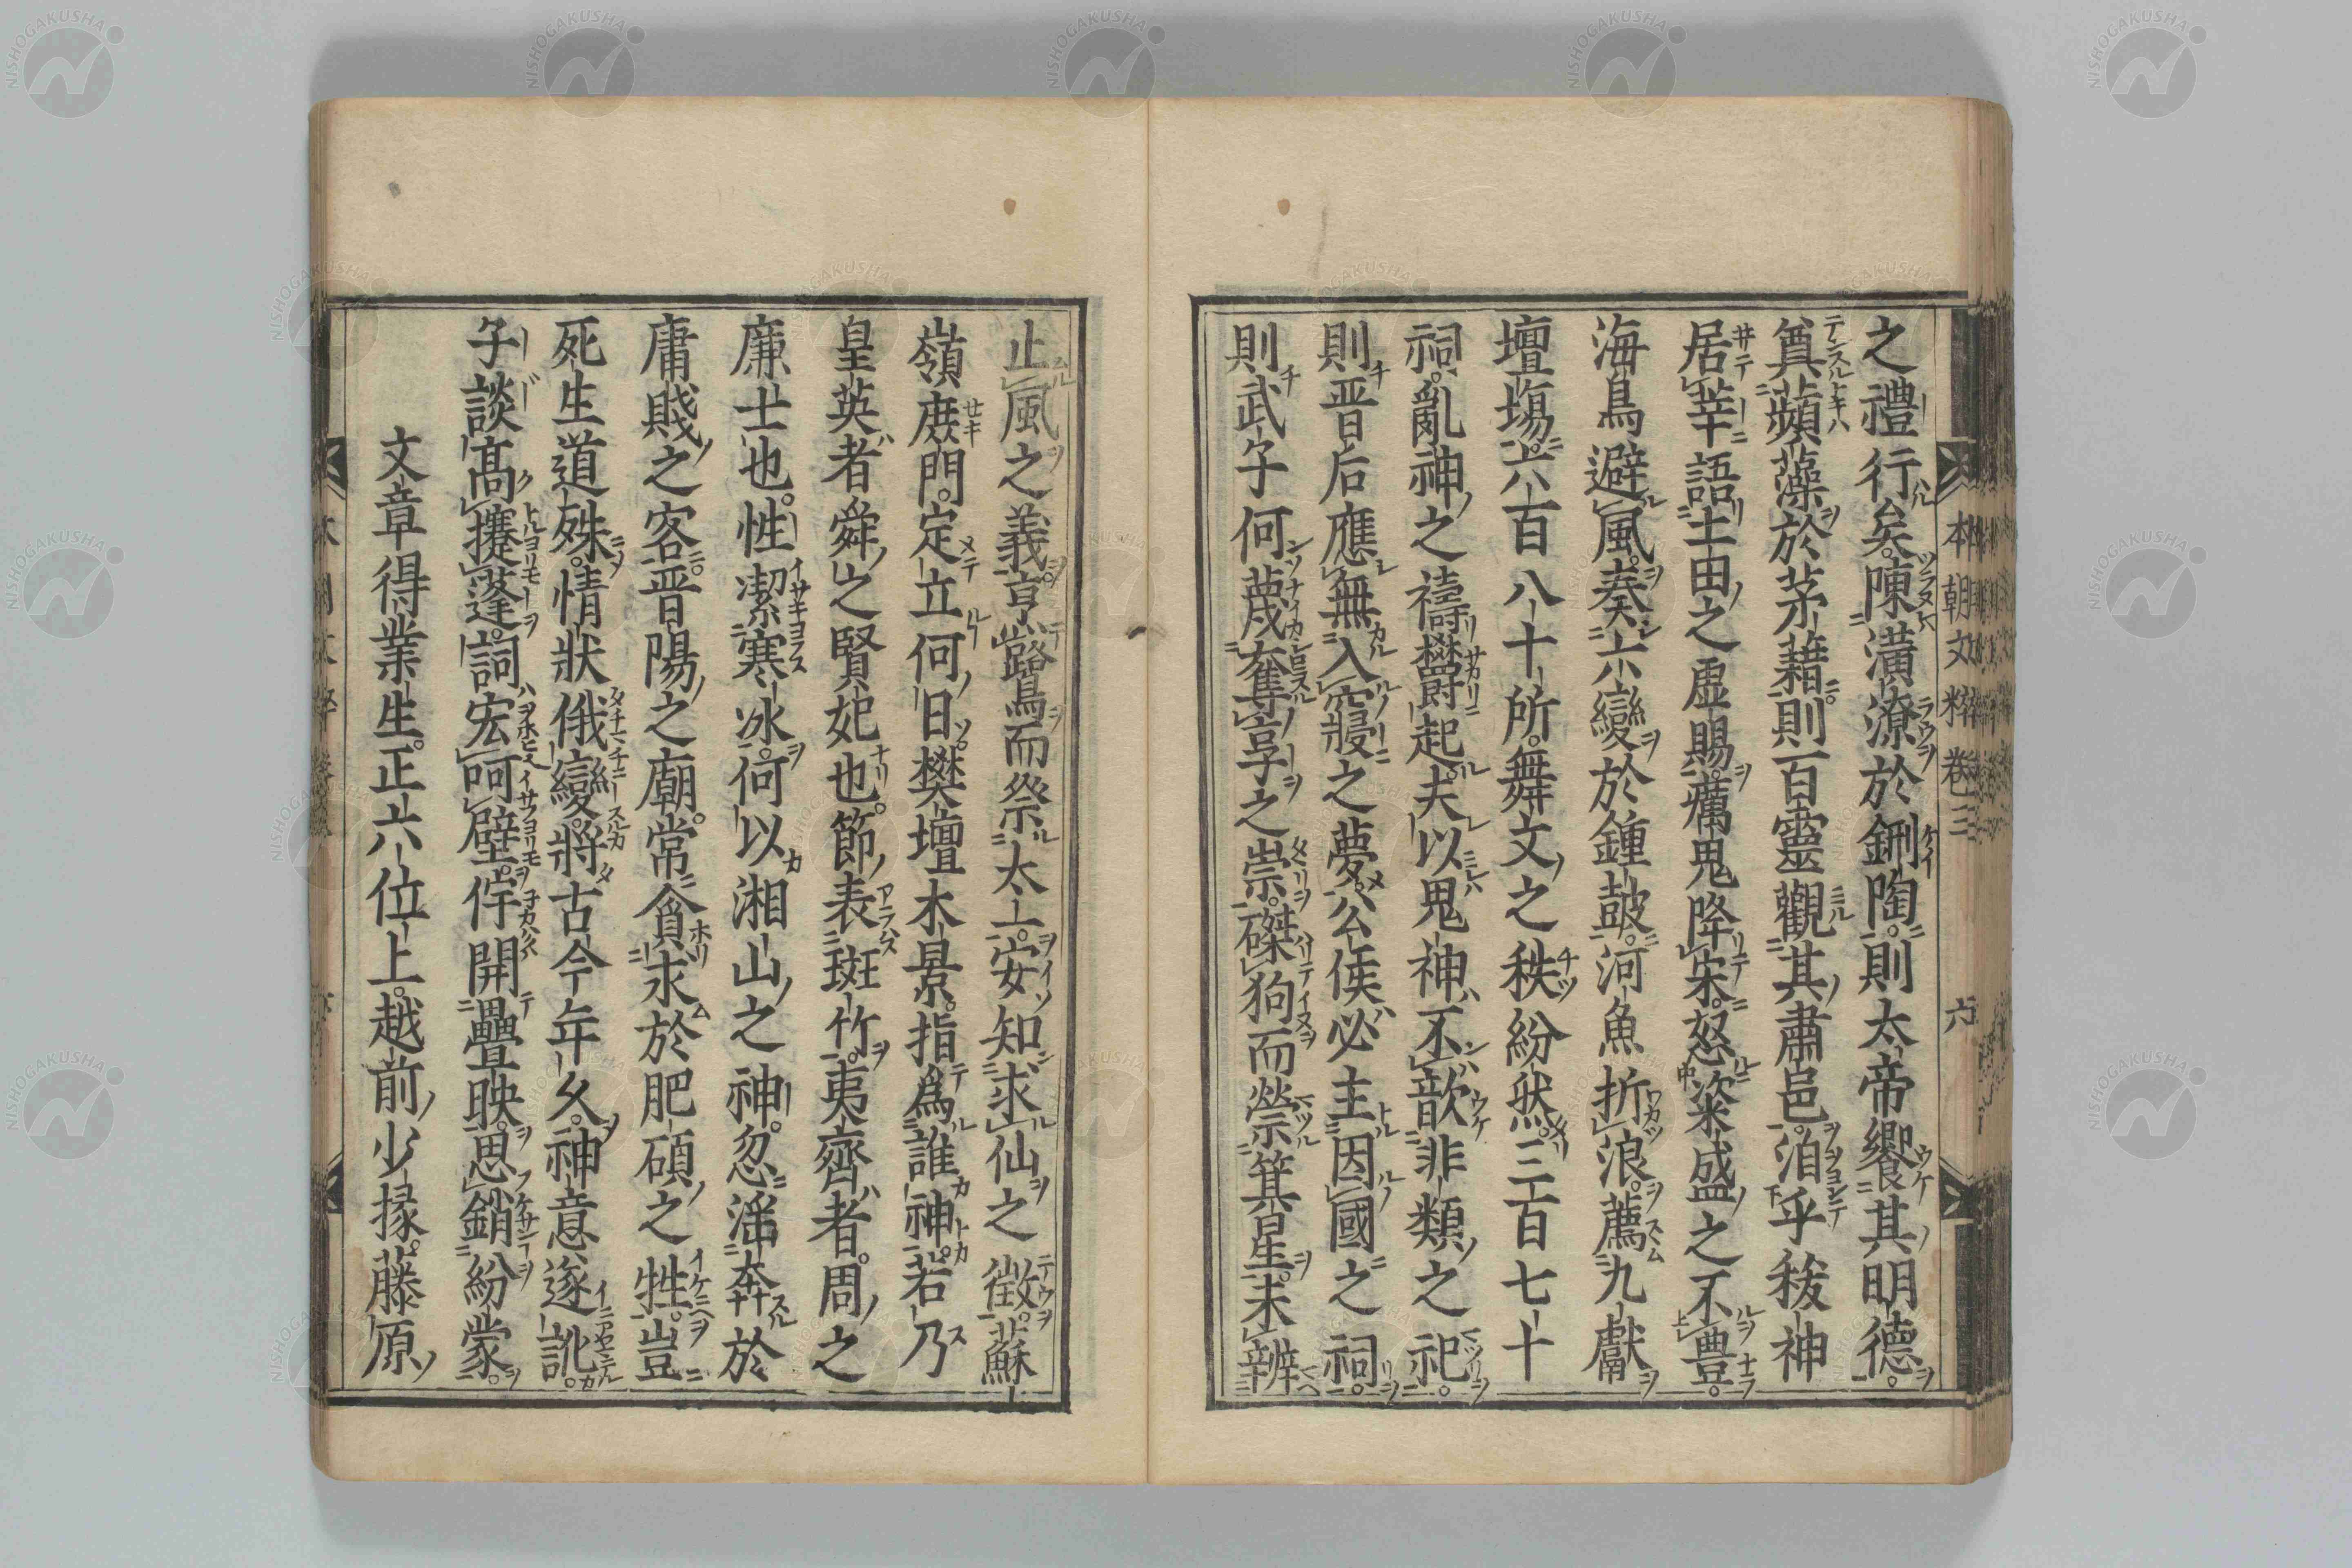 之禮行矣陳潢潦於鉶陶則太帝饗其明德
奠蘋藻於茅藉則百靈觀其肅邕洎乎秡神
居莘語土田之虛賜癘鬼降宋怒粢盛之不豊
海鳥避風奏六變於鍾鼓河魚折浪薦九獻
壇塲六百八十所舞文之秩紛然三百七十
祠亂神之禱欝起夫以鬼神不歆非類之祀
則晋后應無入寢之夢公侯必主因國之祠
則武子何蔑奪享之崇磔狗而禜箕星未辨
止風之義烹鷺鳥而祭太一安知求仙之徴蘇
嶺廌門定立何日樊壇木景指爲誰神若乃
皇英者舜之賢妃也節表斑竹夷齊者周之
廉士也性潔寒冰何以湘山之神忽滛奔於
庸賤之客晋陽之廟常貪求於肥碩之牲豈
死生道殊情狀俄變將古今年久神意逐訛
子談高攓蓬詞宏呵壁佇開疊映思銷紛蒙
文章得業生正六位上越前少掾藤原
本朝文粹卷三
六
NISHOGAKUSHA